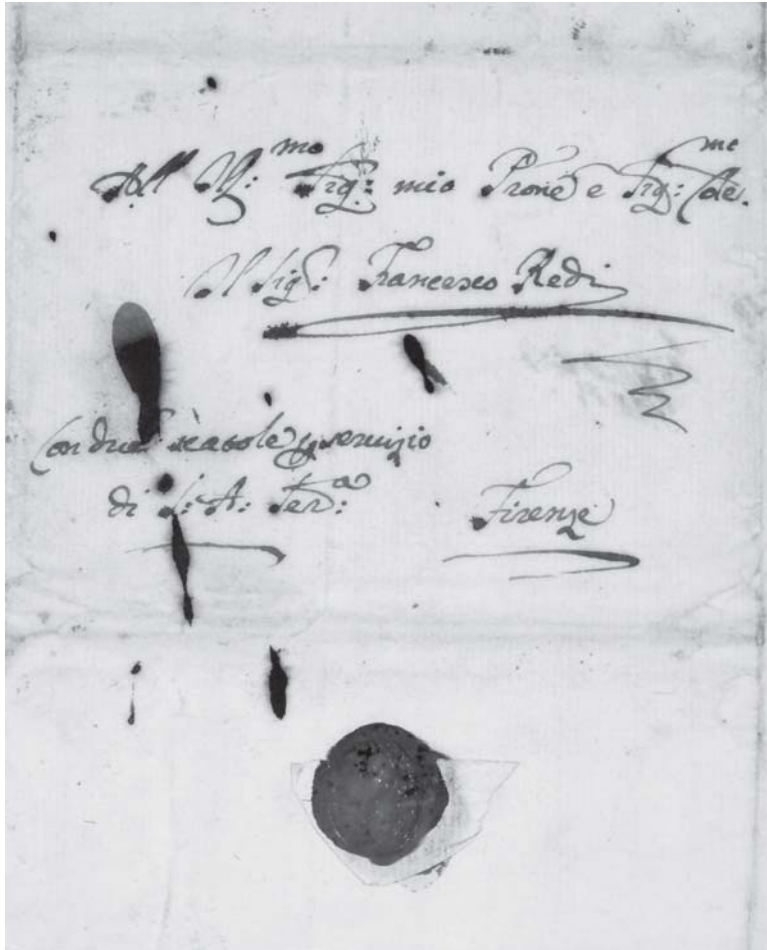 All Ill:mo Sig:r mio Prone e Sig:
Il Sig: Francesco Redi
Con due scatole p servizio
di S: A: Ser:a Firenze